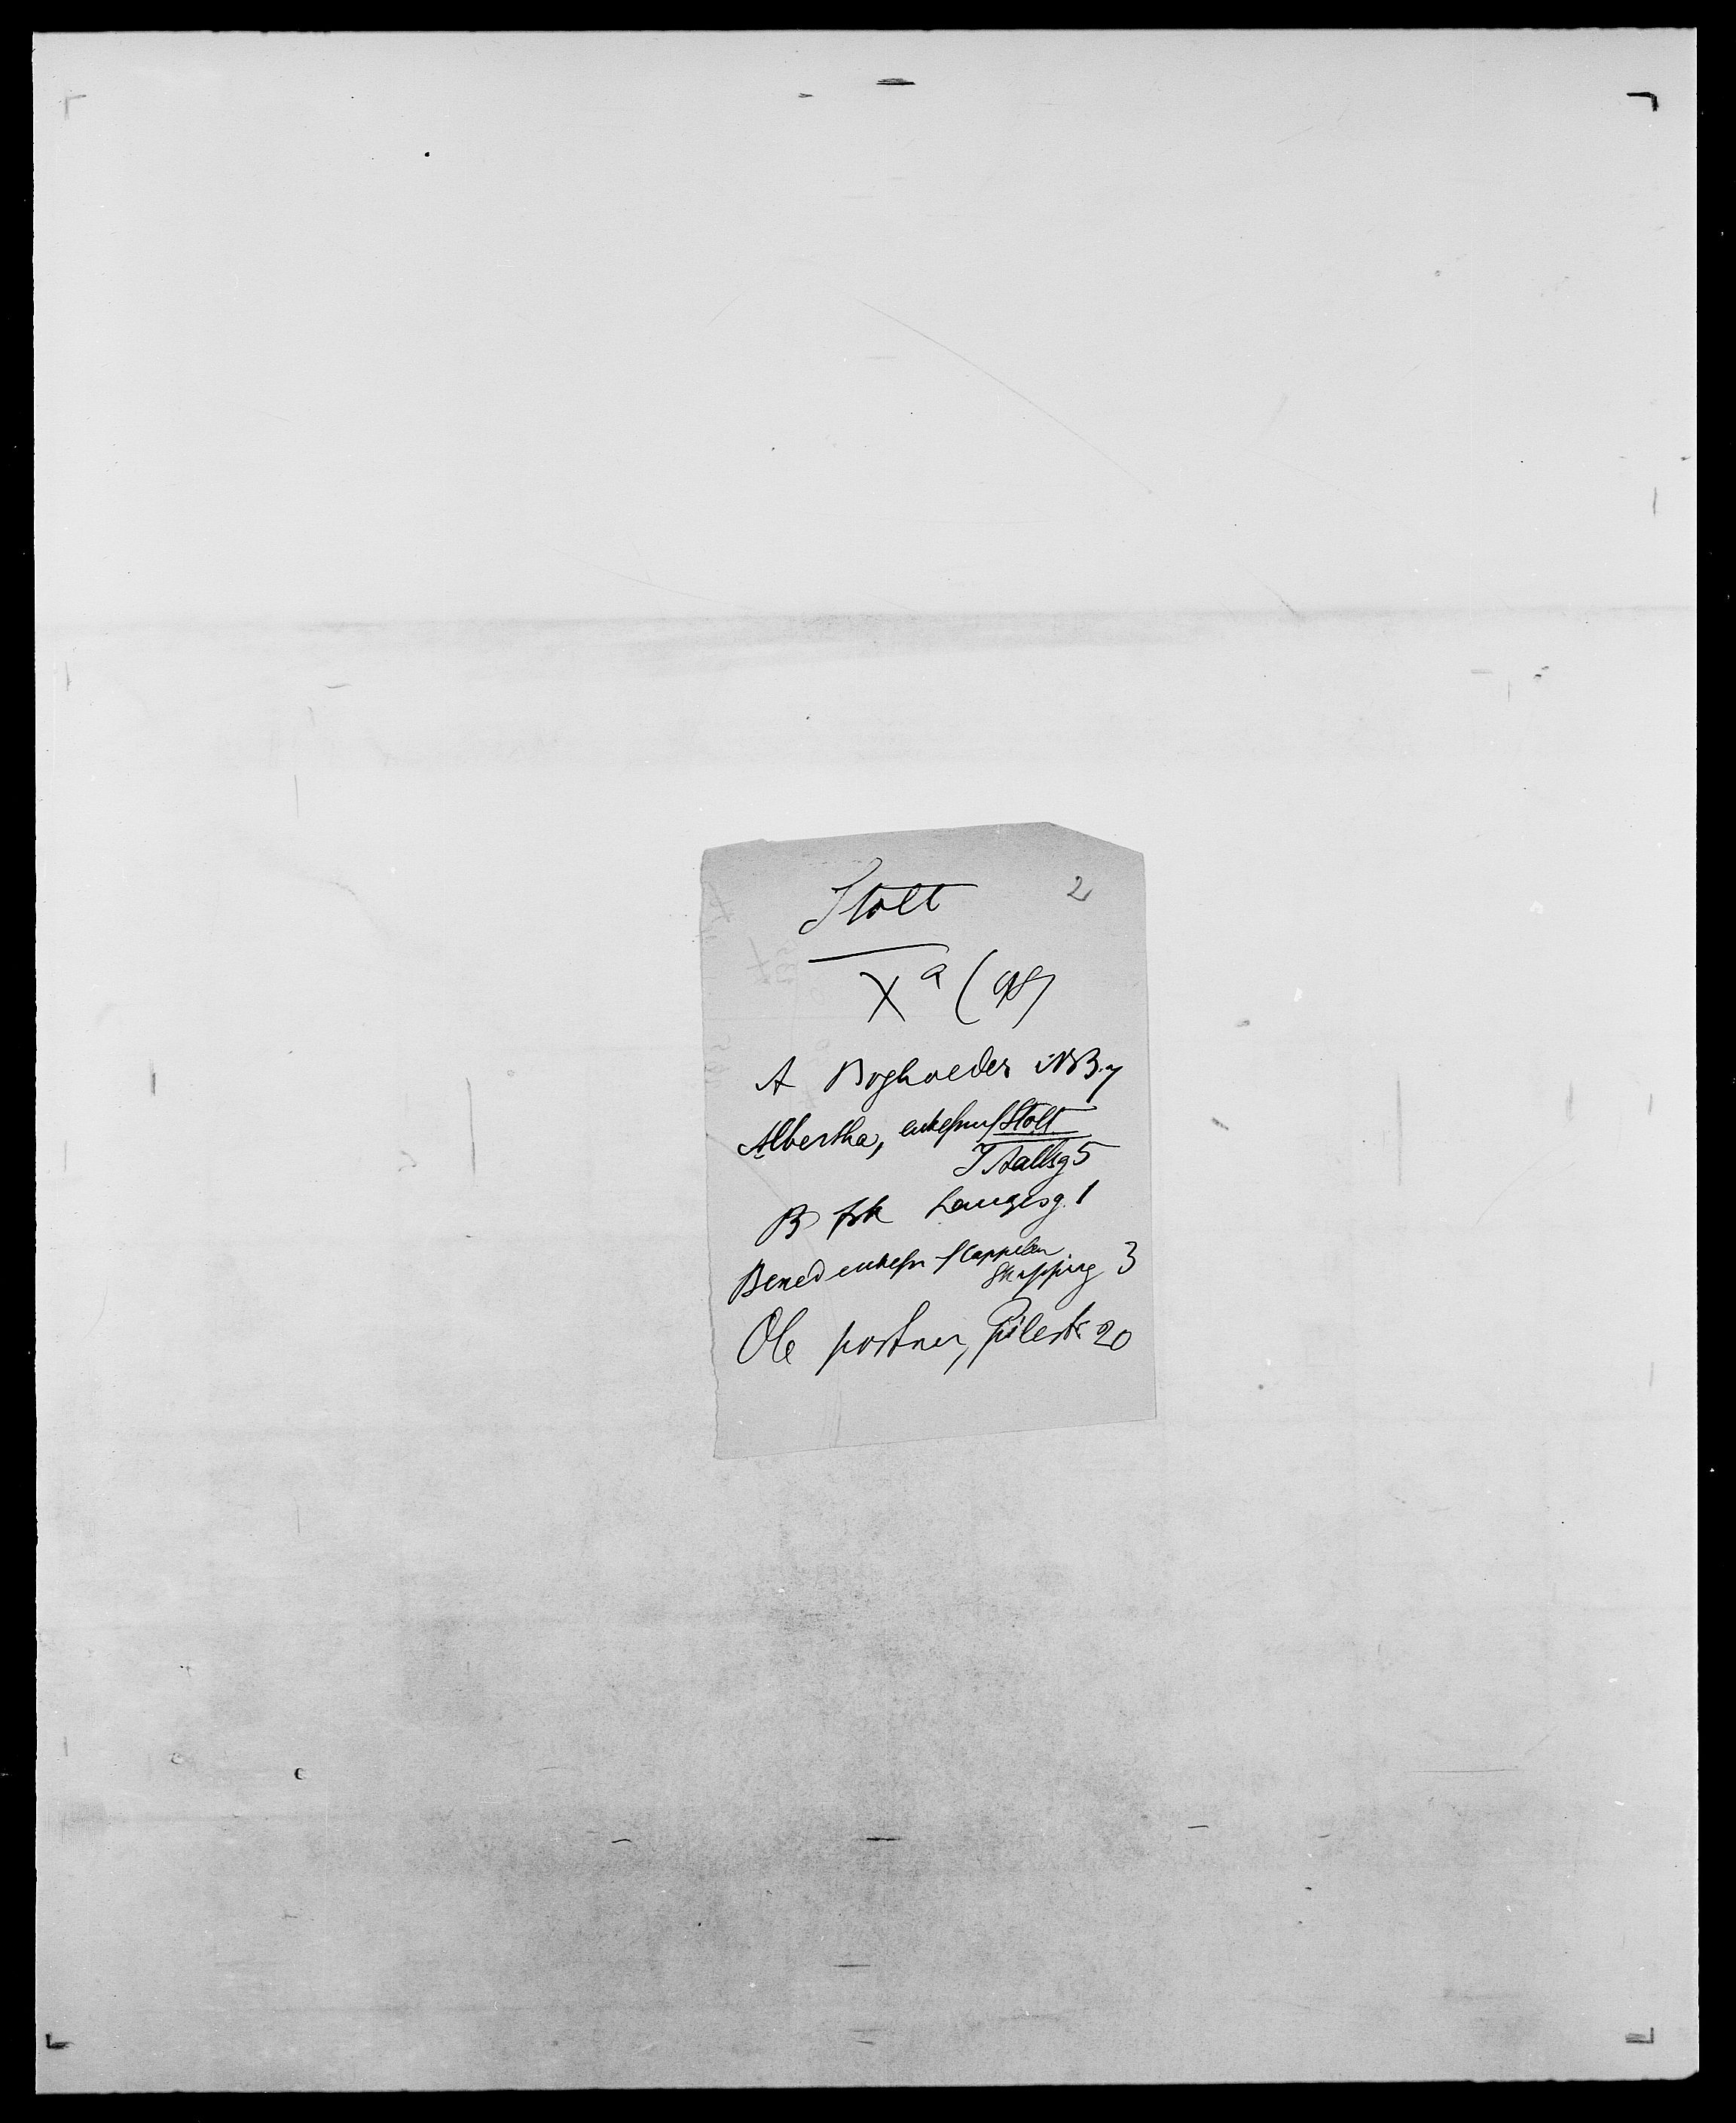 Stolt 2
Xª (98)
A Boghveder
Albertha, enkefru f Stolt
J Aallsg 5
B frk Langesg. 1
Bened enkefr f Cappelen
3
Ole portner, Pilestr 20